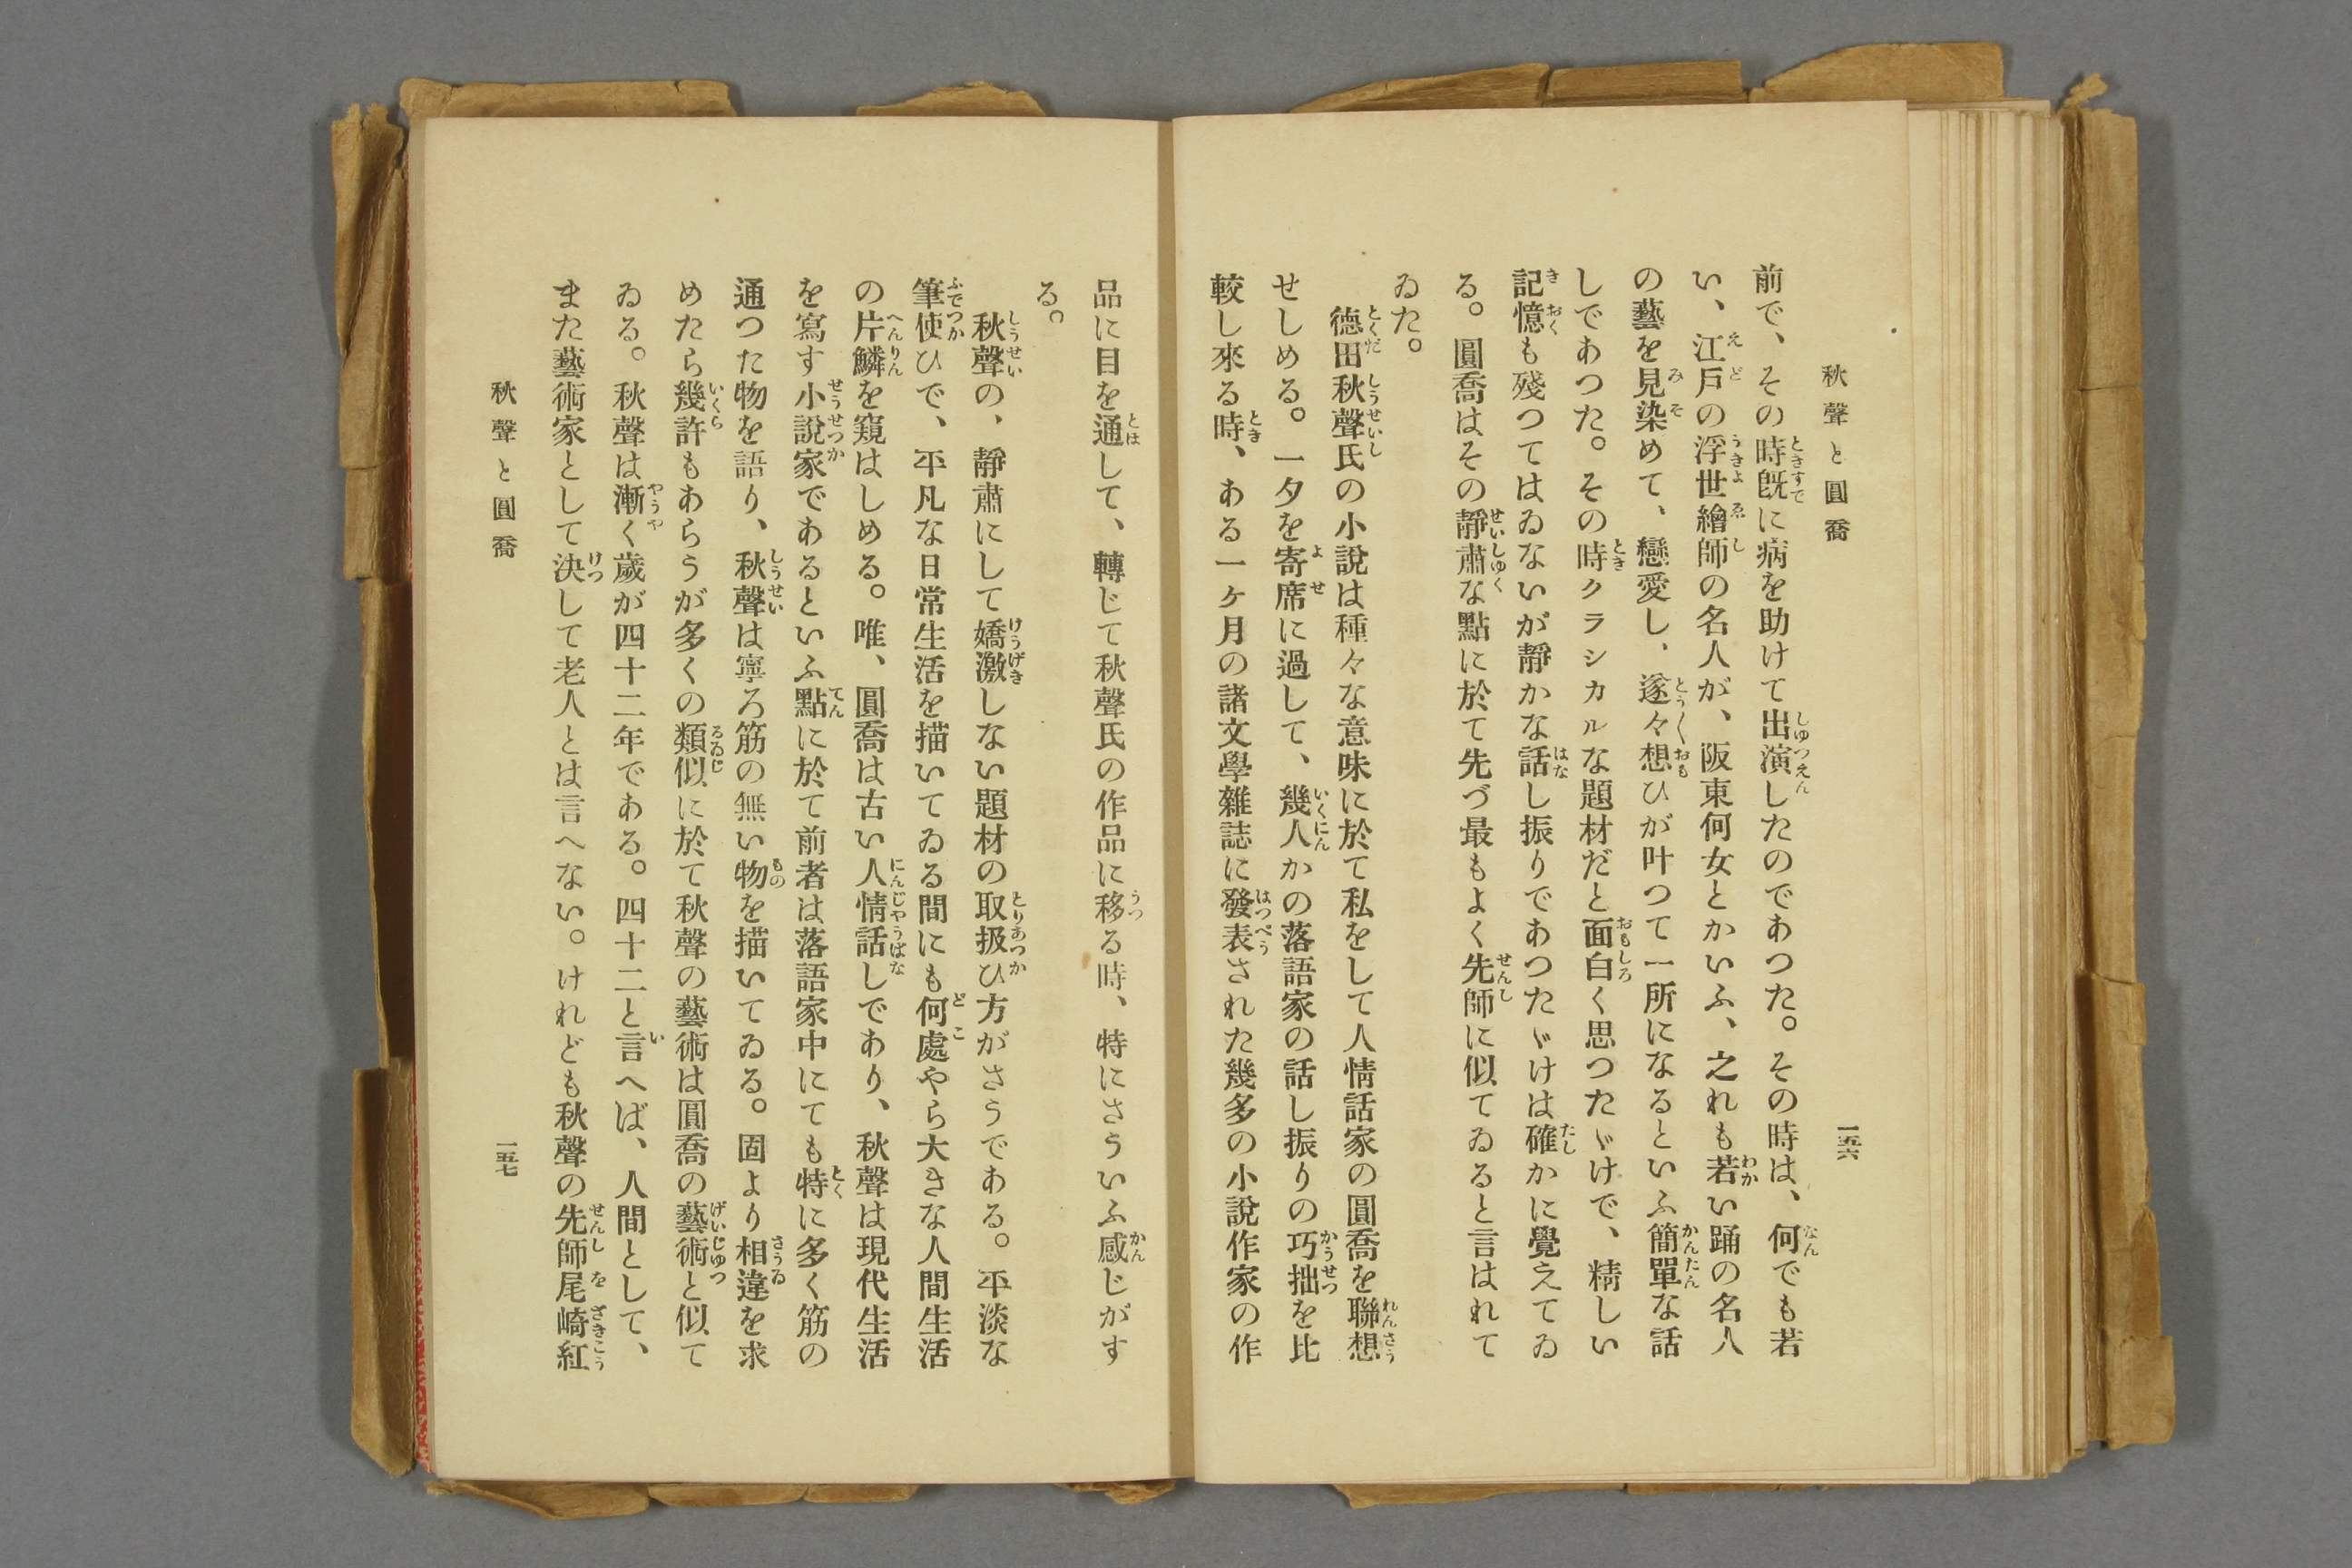 秋聲と圓喬
一五六
前で、その時旣に病を助けて出演したのであつた。その時は、何でも若
い、江戸の浮世繪師の名人が、阪東何女とかいふ、之れも若い踊の名人
の藝を見染めて、戀愛し、遂々想ひが叶つて一所になるといふ簡單な話
しであつた。その時クラシカルな題材だと面白く思つたゞけで、精しい
記憶も殘つてはゐないが靜かな話し振りであつたゞけは確かに覺えてゐ
る。圓喬はその靜肅な點に於て先づ最もよく先師に似てゐると言はれて
ゐた。
德田秋聲氏の小說は種々な意味に於て私をして人情話家の圓喬を聯想
せしめる。一夕を寄席に過して、幾人かの落語家の話し振りの巧拙を比
較し來る時、ある一ヶ月の諸文學雜誌に發表された幾多の小說作家の作
品に目を通して、轉じて秋聲氏の作品に移る時、特にさういふ感じがす
る。
秋聲の、靜肅にして嬌激しない題材の取扱ひ方がさうである。平淡な
筆使ひで、平凡な日常生活を描いてゐる間にも何處やら大きな人間生活
の片鱗を窺はしめる。唯、圓喬は古い人情話しであり、秋聲は現代生活
を寫す小說家であるといふ點に於て前者は落語家中にても特に多く筋の
通つた物を語り、秋聲は寧ろ筋の無い物を描いてゐる。固より相違を求
めたら幾許もあらうが多くの類似に於て秋聲の藝術は圓喬の藝術と似て
ゐる。秋聲は漸く歲が四十二年である。四十二と言へば、人間として、
また藝術家として決して老人とは言へない。けれども秋聲の先師尾崎紅
秋聲と圓喬
一五七